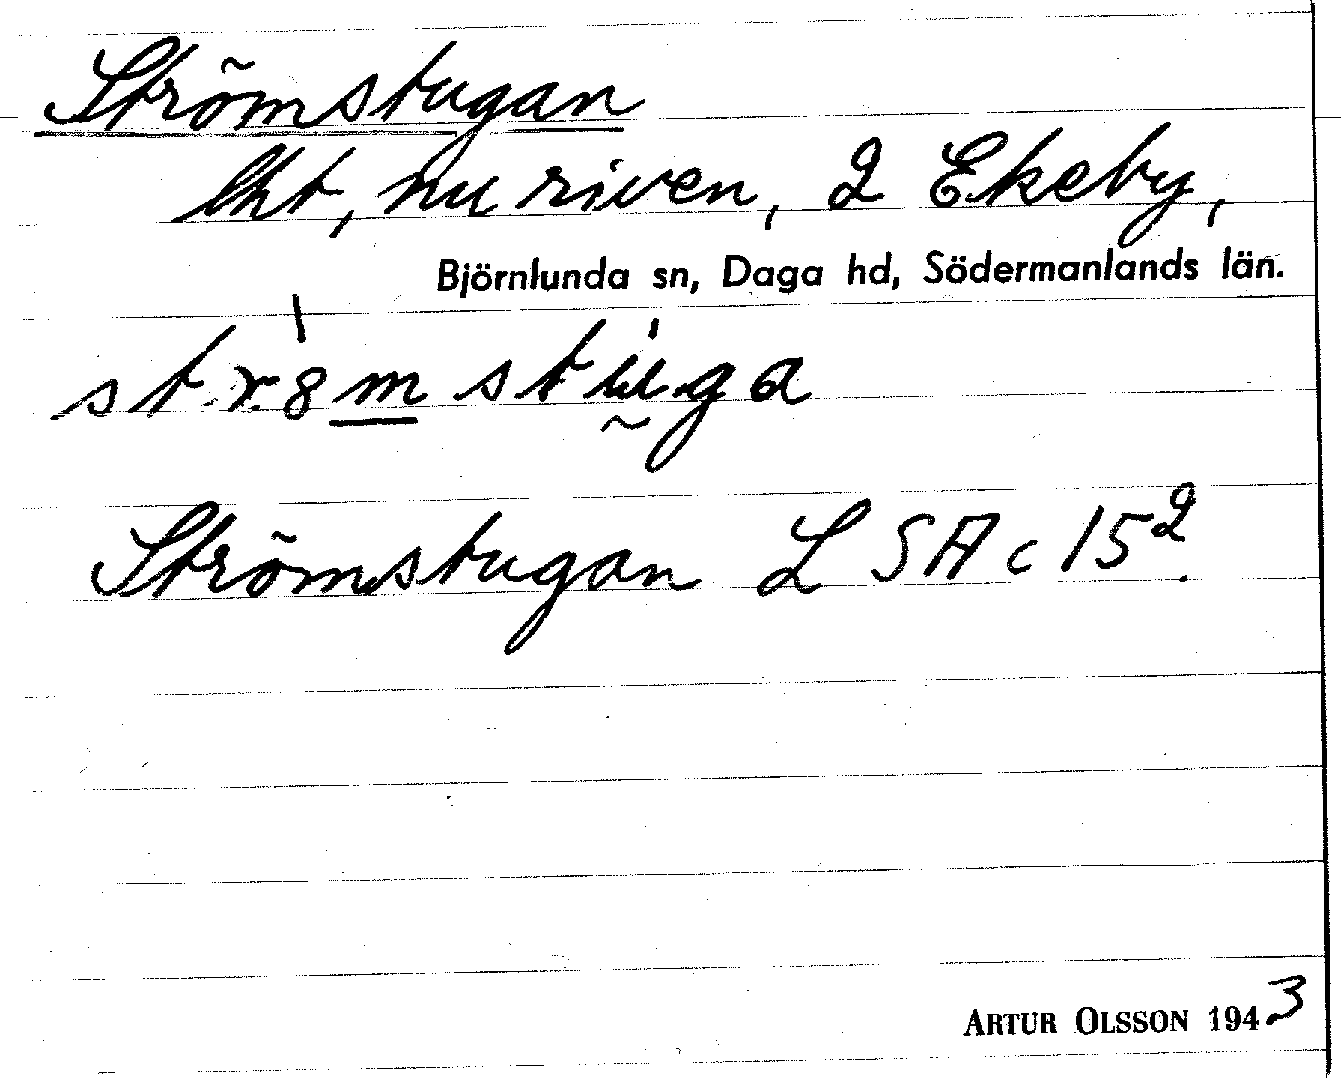 Strömstugan
lht, nu riven, 2 Ekeby,
Björnlunda sn, Daga hd, Södermanlands län.
Strömstugan LSA c 15².
ARTUR OLSSON 1943